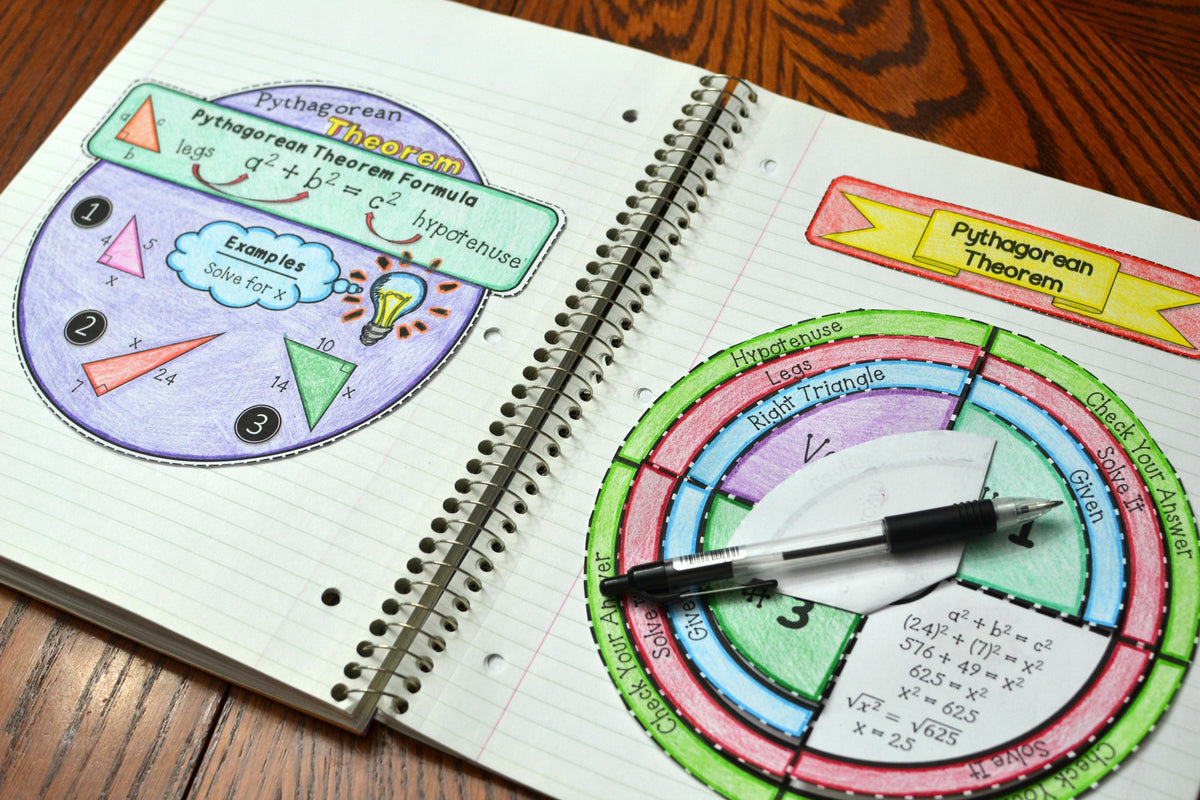 Pythagorean
Theorem
Pythagorean Theorem Formula
a
c
b
legs
a² + b² = c²
hypotenuse
1
4
5
x
Examples
Solve for x
2
x
7
24
10
14
x
3
Pythagorean
Theorem
Hypotenuse
Legs
Right Triangle
Check Your Answer
Solve It
Given
1
Check Your Answer
Solve
Given
#3
a² + b² = c²
(24)² + (7)² = x²
576 + 49 = x²
625 = x²
x² = 625
√x² = √625
x = 25
Solve It
Check